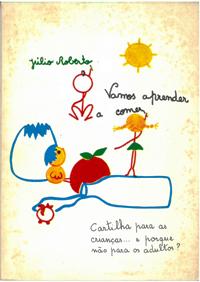 Júlio Roberto
Vamos aprender
a comer
Cartilha para as
crianças... e porque
não para os adultos?